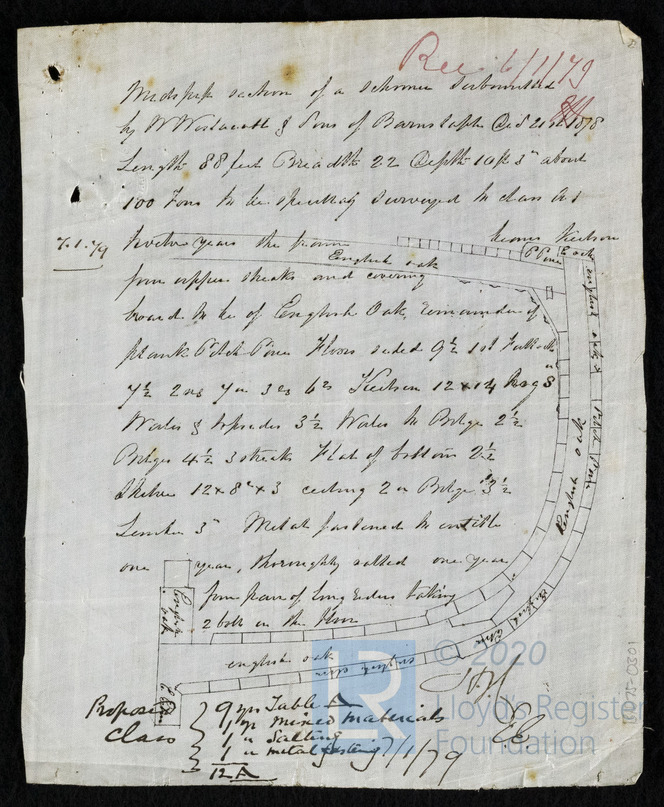 Rec 6/1/79
Midship section of a schooner
by W Westacott & Sons of Barnstaple Decd 21st 1878
Length 88 feet Breadth 22 Depth 10ft 3" about
100 Tons to be specially surveyed to class A1
7.1.79
twelve years the frame
English oak
P Pine
four upper streaks and covering
board to be of English Oak, remainder of
plank Pitch Pine Floors sided 9½ 1st Futtock
7½ 2nd 7in 3rd 6in Keelson 12 x 14
Wales & topsides 3½ Wales to Bilge 2½
Bilges 4½ 3 streaks Flat of bottom 2½
Shelves 12 x 8 x 3 ceiling 2in Bilge 3½
3" Metal fastened to entitle
one year, thoroughly salted one year
four pair of long riders taking
2 bolts in the floor
English oak
english oak
english elm
English
Pitch Pine
English
Elm
Proposed
Class
9 yrs Table A
1 yr mixed materials
1 " Salting
1 " metal fasting 7/1/79
12 A
© 2020
Lloyd's Register
Foundation
LR